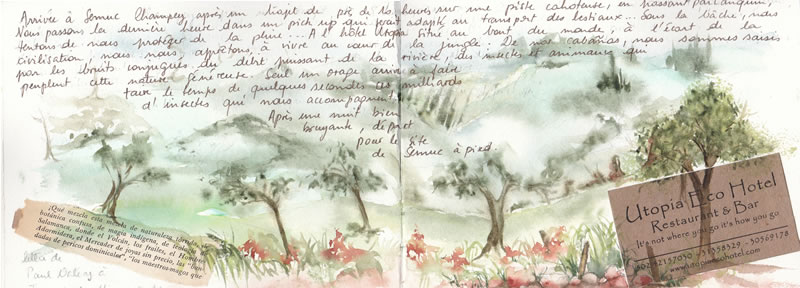 Arrivée à Semuc Champey après un trajet de près de 10 heures sur une piste cahoteuse, en passant par Lanquin.
Nous passons la dernière heure dans un pick up qui paraît adapté au transport des bestiaux... Sous la bâche, nous
tentons de nous protéger de la pluie... A l'hôtel Utopia situé au bout du monde, à l'écart de la
civilisation, nous nous apprêtons à vivre au cœur de la jungle. De nos cabañas, nous sommes saisis
par les bruits conjugués du débit puissant de la rivière, des insectes et animaux qui
peuplent cette nature généreuse. Seul un orage arrive à faire
taire le temps de quelques secondes les milliards
d'insectes qui nous accompagnent
Après une nuit bien
bruyante, départ
pour le site
de Semuc à pied.
¡Qué mezcla esta mezcla de naturaleza tórrida,
botánica confusa, de magia indígena, de
Salamanca, donde el Volcán, los frailes, el Hombre-
Adormidera, el Mercader de joyas sin precio, las "ban-
dadas de pericos dominicales", "los maestros-magos que
lettre de
Paul
Utopia Eco Hotel
Restaurant & Bar
It's not where you go it's how you go
www.utopiaecohotel.com